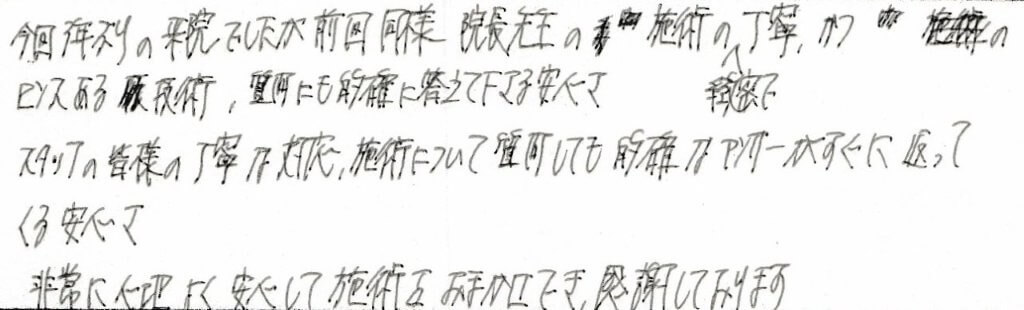 今回7年ぶりの来院でしたが前回同様 院長先生の 施術の丁寧、かつ
センスある 技術, 質問にも的確に答えて下さる安心さ 緻密で
スタッフの皆様の丁寧な対応, 施術について質問しても的確なアンサーがすぐに返って
くる安心さ
非常に心地よく安心して施術をおまかせでき, 感謝しております